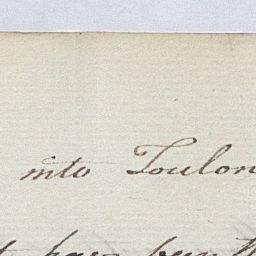 into Toulon
have been